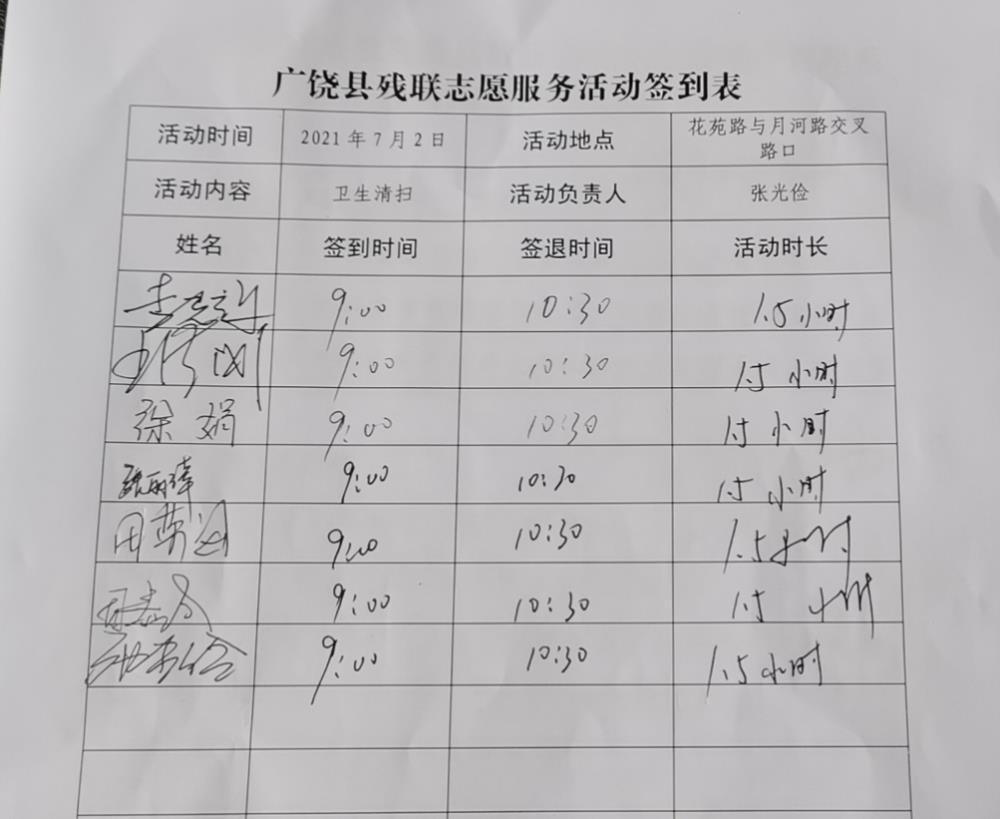 广饶县残联志愿服务活动签到表
活动时间 2021年7月2日 活动地点 花苑路与月河路交叉
路口
活动内容 卫生清扫 活动负责人 张光俭
姓名 签到时间 签退时间 活动时长
9:00 10:30 1.5小时
9:00 10:30 1.5小时
徐娟 9:00 10:30 1.5小时
9:00 10:30 1.5小时
9:00 10:30 1.5小时
9:00 10:30 1.5小时
9:00 10:30 1.5小时